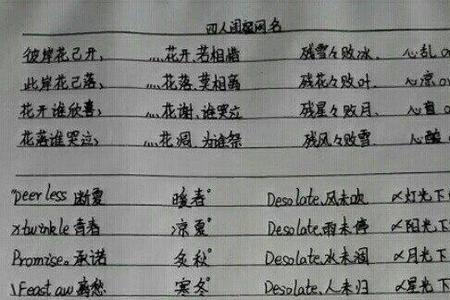 四人闺蜜网名
彼岸花已开、 灬花开、若相惜 残雪々败冰、 心乱
此岸花已落、 灬花落、莫相离 残花々败叶、 心凉
花开谁欣喜、 灬花谢、谁哭泣 残星々败月、 心
花落谁哭泣、 灬花凋、为谁祭 残风々败雪 心酸
peerless 断夏 暖春° Desolate、风未吹 〆灯光下
xtwinkle 青春 凉夏° Desolate、雨未停 〆阳光下
Promise。承诺 冬秋° Desolate、水未涸 〆月光下
离愁 寒冬° Desolate、人未归 〆星光下